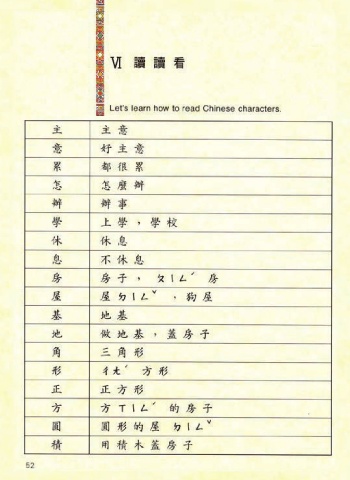 Ⅵ 讀讀看
Let's learn how to read Chinese characters.
主 主意
意 好主意
累 都很累
怎 怎麼辦
辦 辦事
學 上學，學校
休 休息
息 不休息
房 房子，ㄆㄧㄥˊ房
屋 屋ㄉㄧㄥˇ，狗屋
基 地基
地 做地基，蓋房子
角 三角形
形 ㄔㄤˊ方形
正 正方形
方 方ㄒㄧㄥˊ的房子
圓 圓形的屋ㄉㄧㄥˇ
積 用積木蓋房子
52